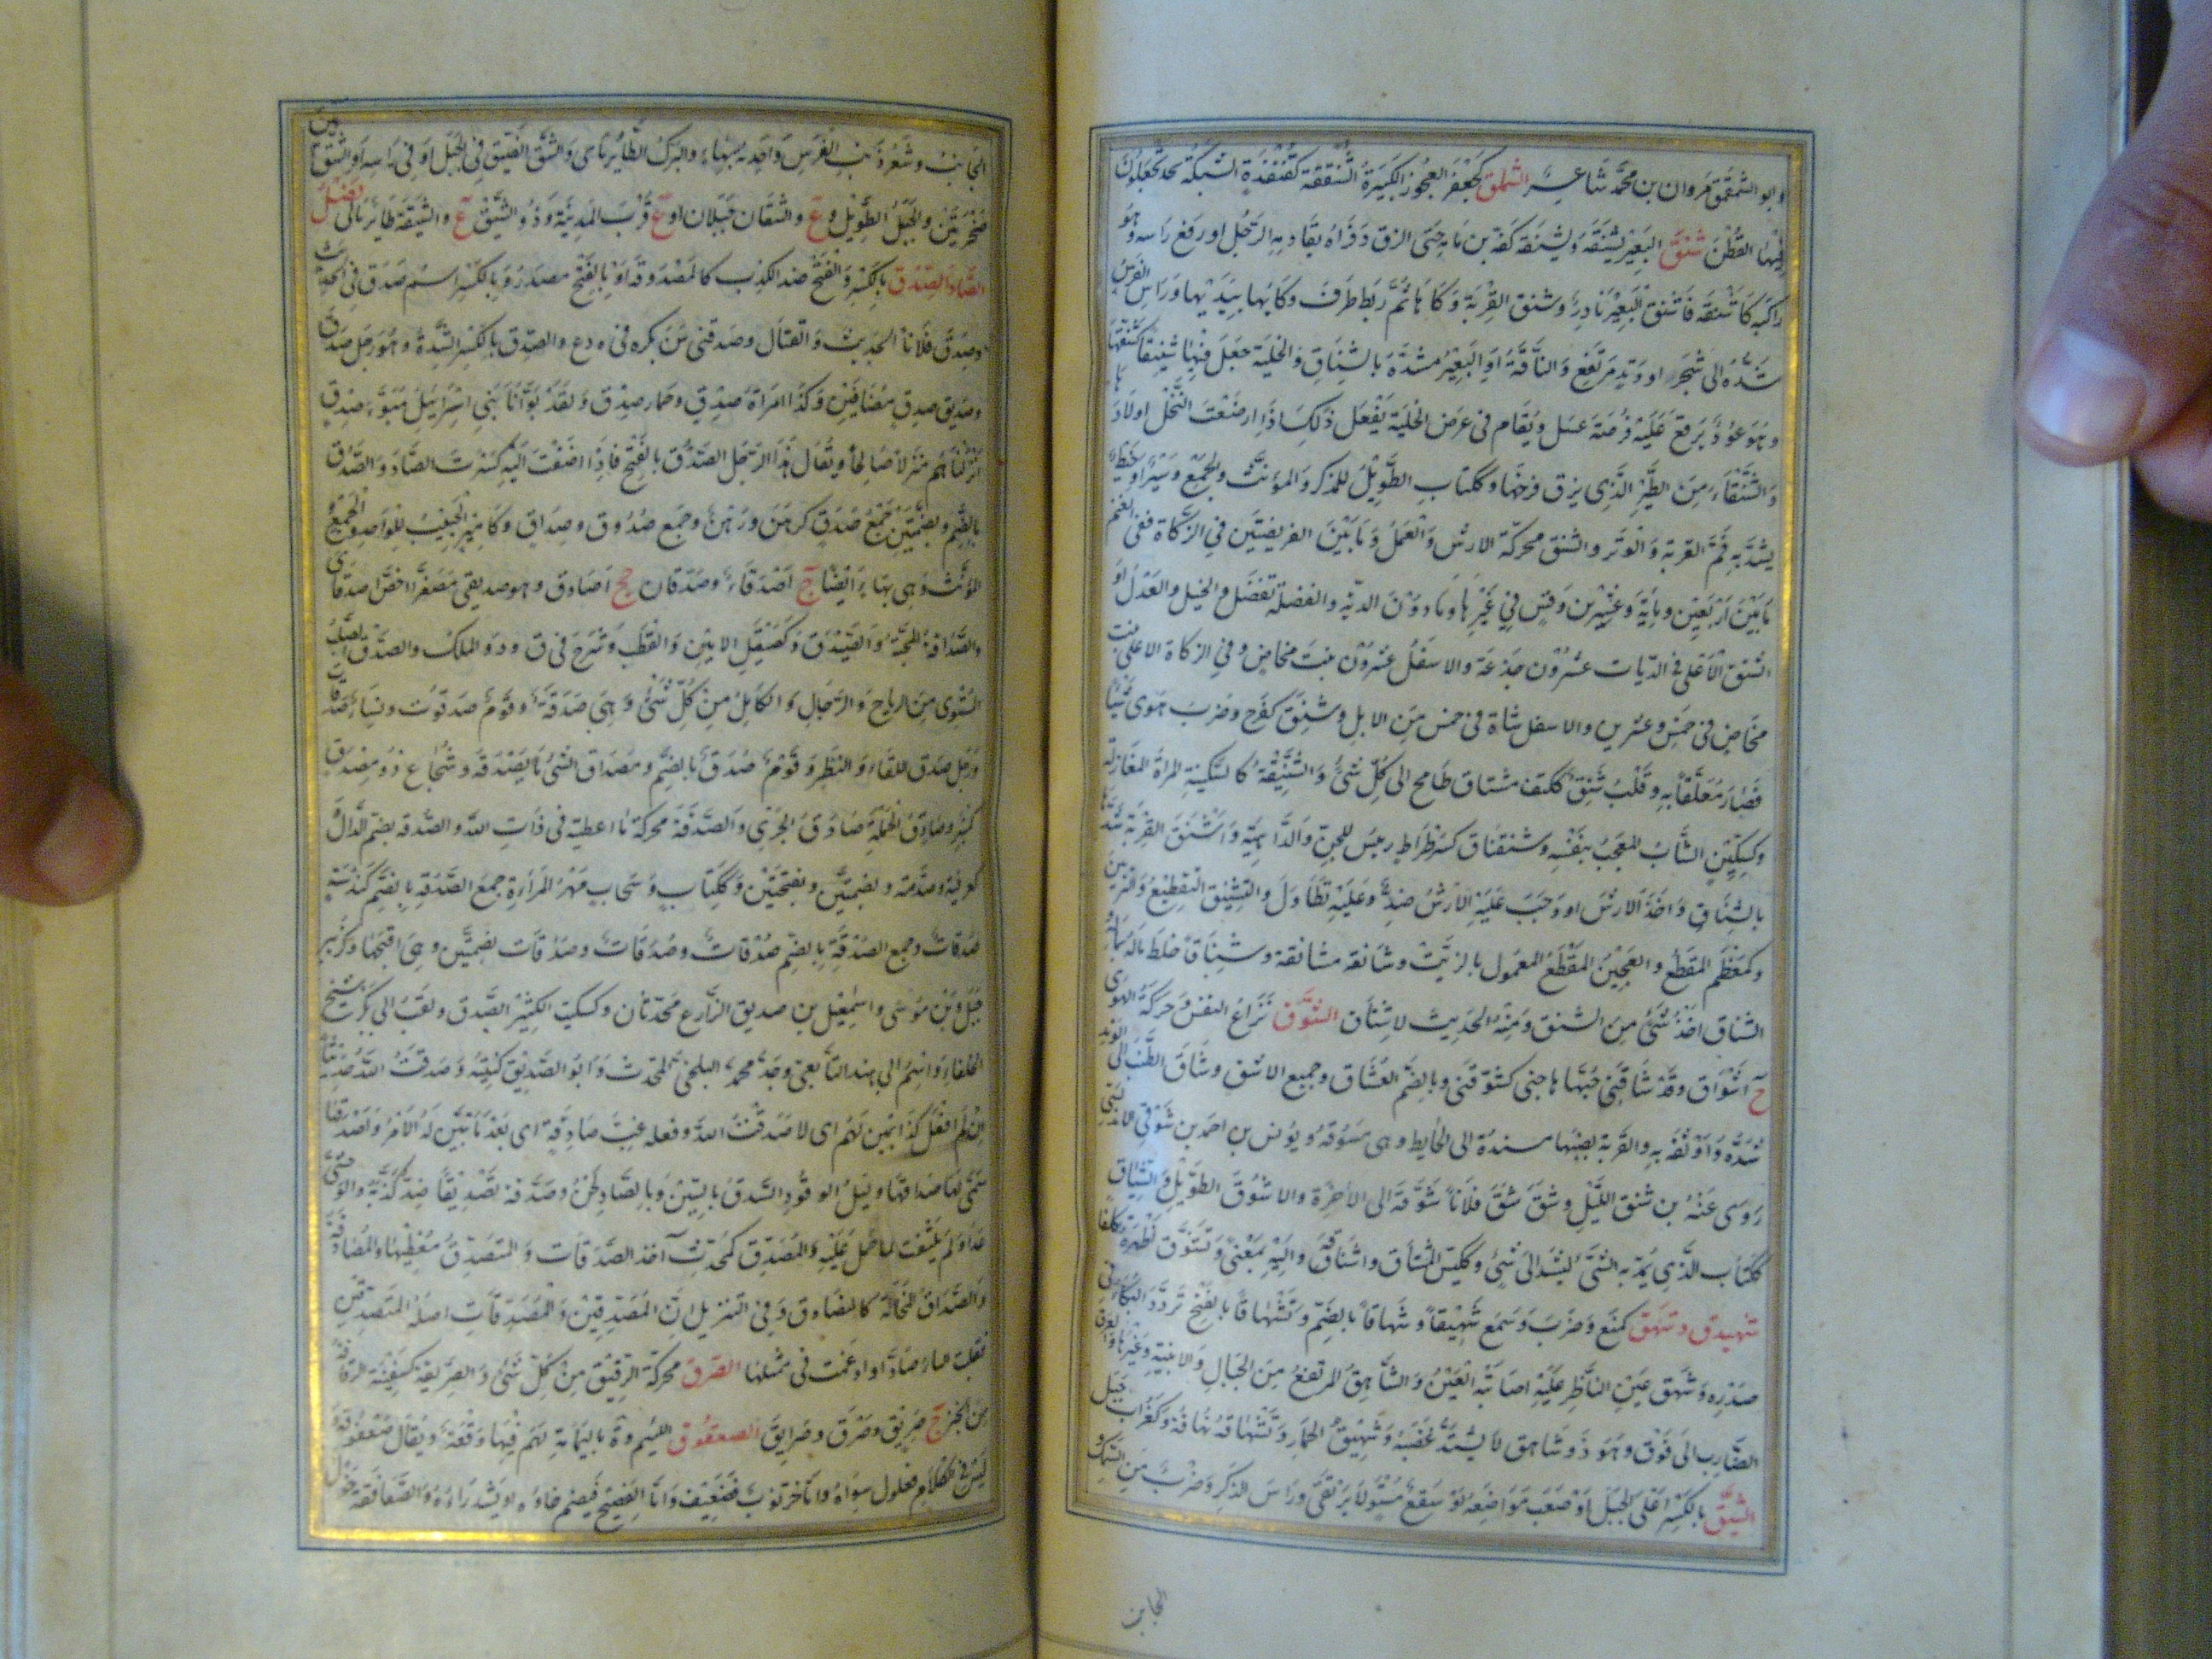 وابو الشمقمق مروان بن محمد شاعر الشملق كجعفر العجوز الكبيرة الشنققة كقنفذة الشبكة تجعلون
فيها القطن شنق البعير يشنقه ويشنقه كفه بزمامه حتى الزق ذفراه بقادمة الرحل او رفع راسه وهو
راكبه كاشنقه فاشنق البعير نادر وشنق القربة وكاها ثم ربط طرف وكائها بيديها وراس الفرس
شده الى شجر او وتد مرتفع والناقة او البعير شده بالشناق والخلية جعل فيها شنيقا كشنقها
وهو عود يرفع عليه قرصة عسل ويقام في عرض الخلية يفعل ذلك اذا ارضعت النحل اولادها
والشنقاء من الطير الذي يزق فرخها وككتاب الطويل للمذكر والمؤنث والجمع وسير او خيط
يشد به فم القربة والوتر والشنق محركة الارش والعمل وما بين الفريضتين في الزكاة ففي الغنم
ما بين اربعين ومائة وعشرين وقس في غيرها وما دون الدية والفضلة تفضل والحبل والعدل او
الشنق الاعلى في الديات عشرون جذعة والاسفل عشرون بنت مخاض وفي الزكاة الاعلى بنت
مخاض في خمس وعشرين والاسفل شاة في خمس من الابل وشنق كفرح وضرب هوى شيئا
فصار معلقا به وقلب شنق ككتف مشتاق طامح الى كل شئ والشنيقة كالسكينة المراة المغازلة
وكسكين الشاب المعجب بنفسه وشنقناق كسرطراط رئيس للجن والداهية واشنق القربة شدها
بالشناق واخذ الارش او وجب عليه الارش ضد وعليه تطاول والتشنيق التقطيع والتزيين
وكمعظم المقطع والعجين المقطع المعمول بالزيت وشانقه مشانقة وشناقا خلط ماله بماله و
الشناق اخذ شئ من الشنق ومنه الحديث لا شناق الشوق نزاع النفس وحركة الهوى
ج اشواق وقد شاقني حبها هاجني كشوقني وبالضم العشاق وجميع الاشوق وشاق الطنب الى الوتد
شده واوثقه به والقربة نصبها مسندة الى الحايط وهي مشوقة ويونس بن احمد بن شوقي الاندلسي
روى عنه بن شنق الليل وشق شق فلانا شوقه الى الاخرة والاشوق الطويل والشياق
ككتاب الذي يمد به الشئ ليشد الى شئ وككيس المشتاق واشتاقه واليه بمعنى وتشوق اظهره تكلفا
شهيدق وشهق كمنع وضرب وسمع شهيقا وشهاقا بالضم وتشهاقا بالفتح تردد البكاء في
صدره وشهق عين الناظر عليه اصابته العين والشاهق المرتفع من الجبال والابنية وغيرها والعرق
الضارب الى فوق وهو ذو شاهق لا يشتد غضبه وشهيق الحمار وتشهاقه نهاقه وكغراب جبل
الشيق بالكسر اعلى الجبل او صعب مواضعه او سقع مستو لا يرتقى وراس الذكر وضرب من السمك و
الجانب
الجانب وشعر ذنب الفرس واحدته بهاء والبرك الطائر مائي والشق الضيق في الجبل او في راسه او الشق بين
صخرتين والجبل الطويل وع والشقان جبلان او ع قرب المدينة وذو الشيق ع والشيقة طائر مائي فصل
الصاد الصدق بالكسر والفتح ضد الكذب كالمصدوقة او بالفتح مصدر وبالكسر اسم صدق في الحديث
وصدق فلانا الحديث والقتال وصدقني سن بكره في ه د ع والصدق بالكسر الشدة وهو رجل صدق
وصديق صدق مضافين وكذا امراة صدق وحمار صدق ولقد بوانا بني اسرائيل مبوء صدق
انزلناهم منزلا صالحا ويقال هذا الرجل الصدق بالفتح فاذا اضفت اليه كسرت الصاد والصدق
بالضم وبضمتين جمع صدق كرهن ورهن وجمع صدوق وصداق وكامير الحبيب للواحد والجمع
والمؤنث وهي بهاء ايضا ج اصدقاء وصدقان جج اصادق وهو صديقي مصغرا اخص اصدقائي
والصداقة المحبة والصيدق كصيقل الامين والقطب وشرح في ق ود والملك والصدق الصلب
المستوى من الرماح والرجال والكامل من كل شئ وهي صدقة وقوم صدقون ونساء صدقات
ورجل صدق اللقاء والنظر وقوم صدق بالضم ومصداق الشئ ما يصدقه وشجاع ذو مصدق
كمنبر صادق الحملة صادق الجري والصدقة محركة ما اعطيته في ذات الله والصدقة بضم الدال
كغرفة وصدمة وبضمتين وبفتحتين وككتاب وسحاب مهر المراة جمع الصدقة بالضم كندسة
صدقات وجمع الصدقة بالضم صدقات وصدقات وصدقات بضمتين وهي اقبحها وكزبير
جبل وبن موسى واسمعيل بن صديق الذارع محدثان وكسكيت الكثير الصدق ولقب ابي بكر شيخ
الخلفاء واسم ابي هند التابعي وجد محمد البلخي المحدث وابو الصديق كنيته وصدقت الله حديثا
ان لم افعل كذا يمين لهم اي لا صدقت الله وفعله غب صادقة اي بعد ما تبين له الامر واصدقها
سمى لها صداقها وليل الوقود السدق بالسين وبالصاد لحن وصدقه تصديقا ضد كذبه والوحشي
عدا ولم يلتفت لما حمل عليه والمصدق كمحدث آخذ الصدقات والمتصدق معطيها والمصادقة
والصداق المخالة كالتصادق وفي التنزيل ان المصدقين والمصدقات اصله المتصدقين
فقلبت التاء صادا وادغمت في مثلها الصرق محركة الرقيق من كل شئ والصريقة كسفينة الرقاقة
من الخبز ج صريق وصرق وصرايق الصعفوق اللئيم وة باليمامة لهم فيها وقعة ويقال صعفوقة و
ليس في الكلام فعلول سواه واما خرنوب فضعيف واما الفصيح فيضم خاؤه او يشد راؤه والصعافقة خول